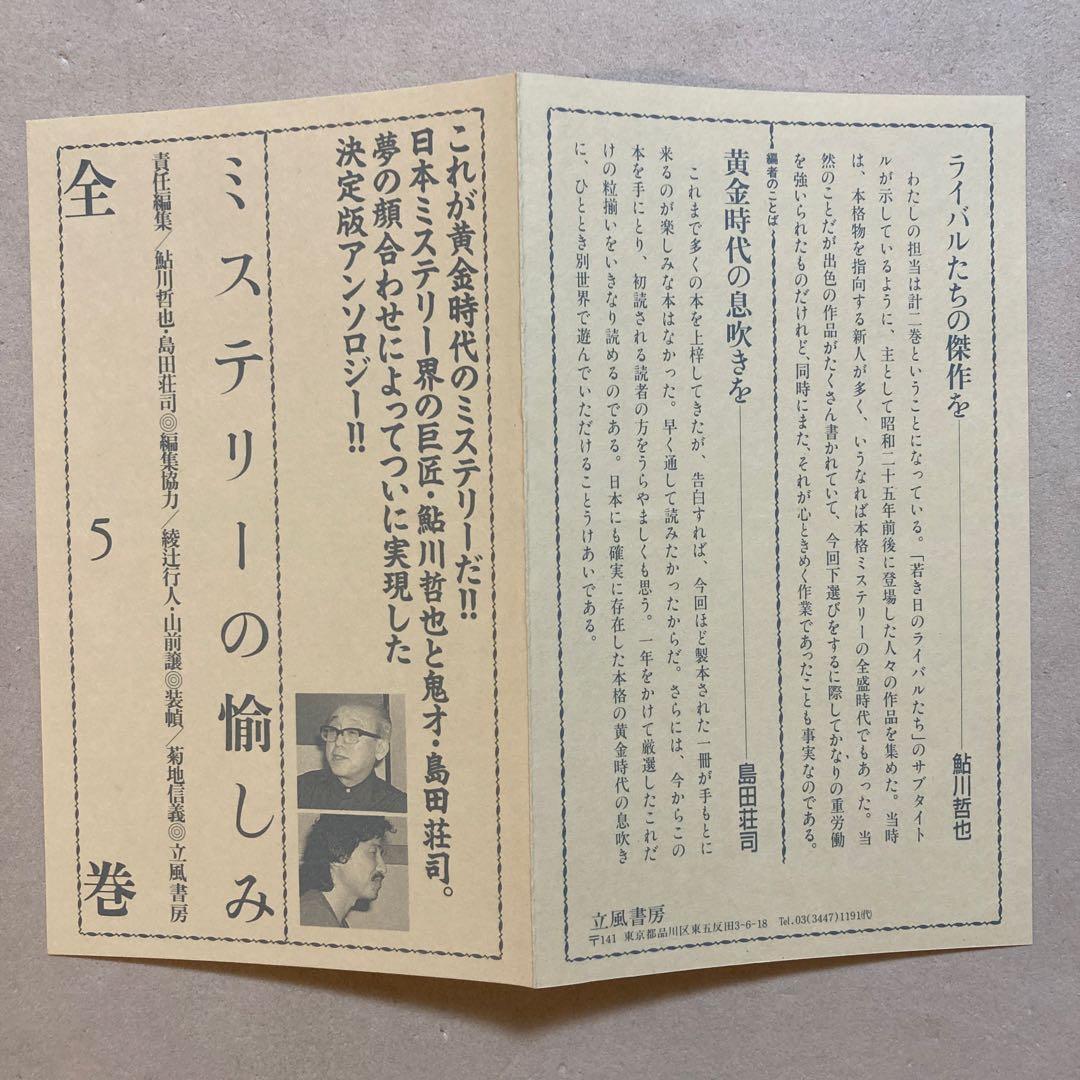 ライバルたちの傑作を――鮎川哲也
わたしの担当は計二巻ということになっている。「若き日のライバルたち」のサブタイト
ルが示しているように、主として昭和二十五年前後に登場した人々の作品を集めた。当時
は、本格物を指向する新人が多く、いうなれば本格ミステリーの全盛時代でもあった。当
然のことだが出色の作品がたくさん書かれていて、今回下選びをするに際してかなりの重労働
を強いられたものだけれど、同時にまた、それが心ときめく作業であったことも事実なのである。
編者のことば
黄金時代の息吹きを――島田荘司
これまで多くの本を上梓してきたが、告白すれば、今回ほど製本された一冊が手もとに
来るのが楽しみな本はなかった。早く通して読みたかったからだ。さらには、今からこの
本を手にとり、初読される読者の方をうらやましくも思う。一年をかけて厳選したこれだ
けの粒揃いをいきなり読めるのである。日本にも確実に存在した本格の黄金時代の息吹き
に、ひととき別世界で遊んでいただけることうけあいである。
立風書房
〒141 東京都品川区東五反田3-6-18 Tel.03(3447)1191(代)
これが黄金時代のミステリーだ!!
日本ミステリー界の巨匠・鮎川哲也と鬼才・島田荘司。
夢の顔合わせによってついに実現した
決定版アンソロジー!!
ミステリーの愉しみ
責任編集/鮎川哲也・島田荘司◎編集協力/綾辻行人・山前譲◎装幀/菊地信義◎立風書房
全5巻